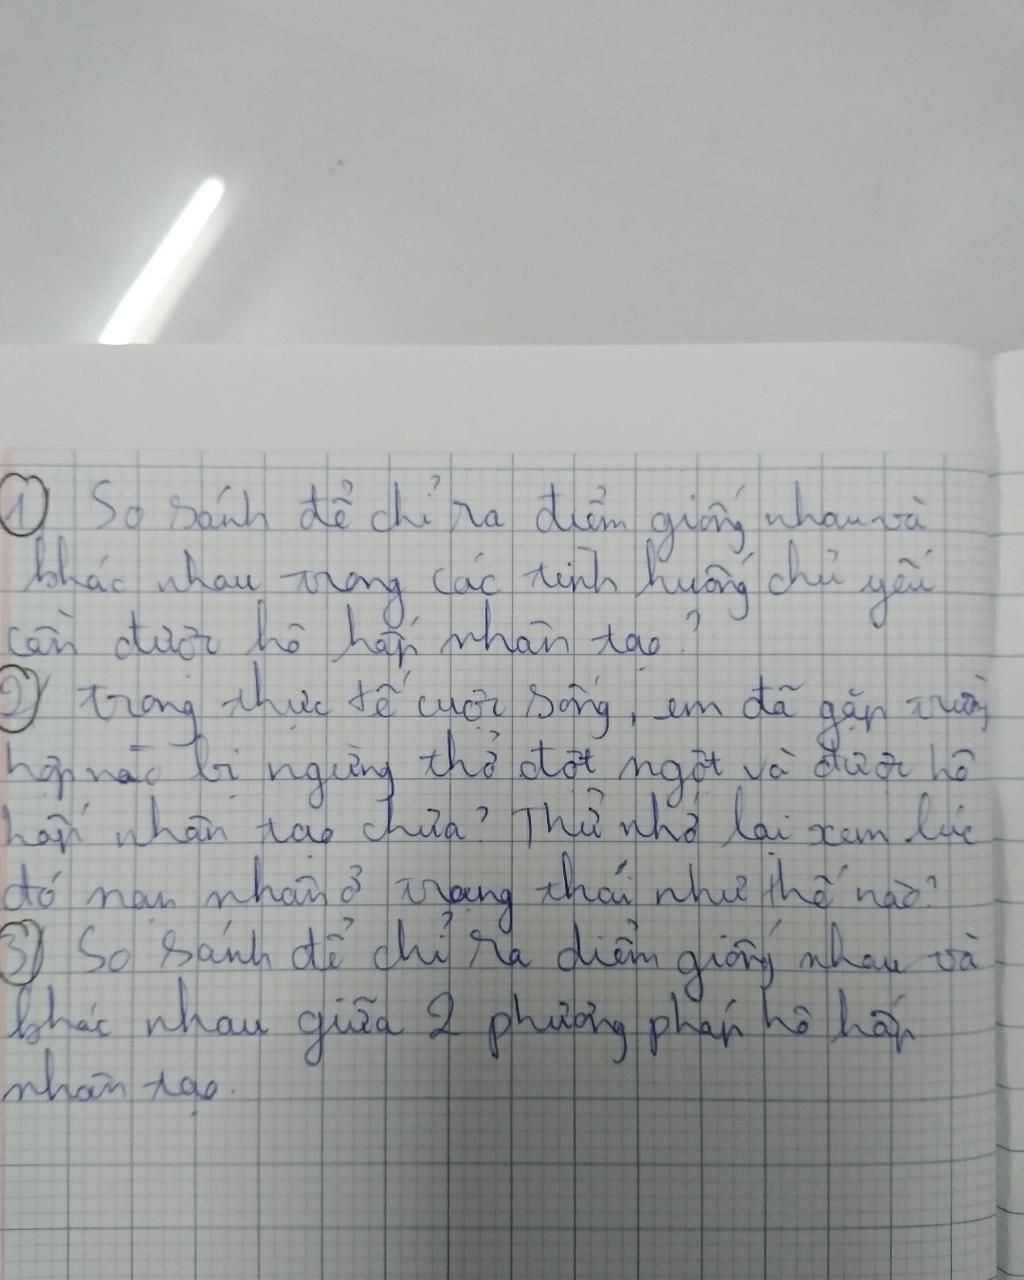 ① So sánh để chỉ ra điểm giống nhau và
khác nhau trong các tình huống chủ yếu
cần được hô hấp nhân tạo?
② trong thực tế cuộc sống, em đã gặp trường
hợp nào bị ngừng thở đột ngột và được hô
hấp nhân tạo chưa? Thử nhớ lại xem lúc
đó nạn nhân ở trạng thái như thế nào?
③ So sánh để chỉ ra điểm giống nhau và
khác nhau giữa 2 phương pháp hô hấp
nhân tạo.